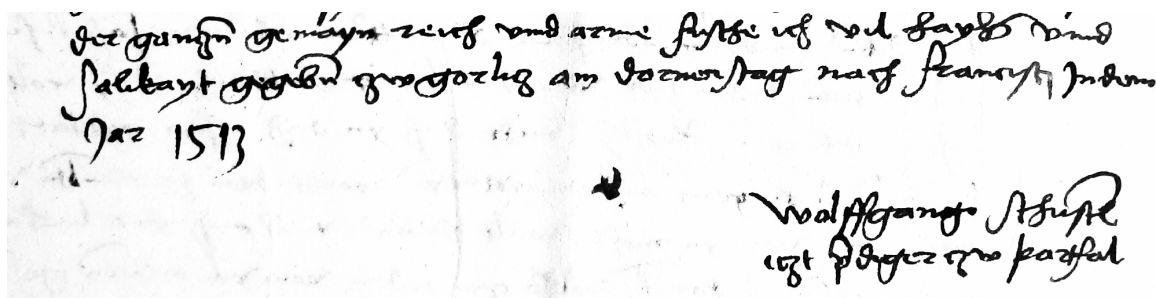 der ganczn gemayn reich vnd arme fusche ich vil hayls vnnd
salikayt gegebn czw gorlicz am dornerstag nach francisci Jn dem
Jar 1513
Wolffgang Schuste
iczt pdiger czw partfal